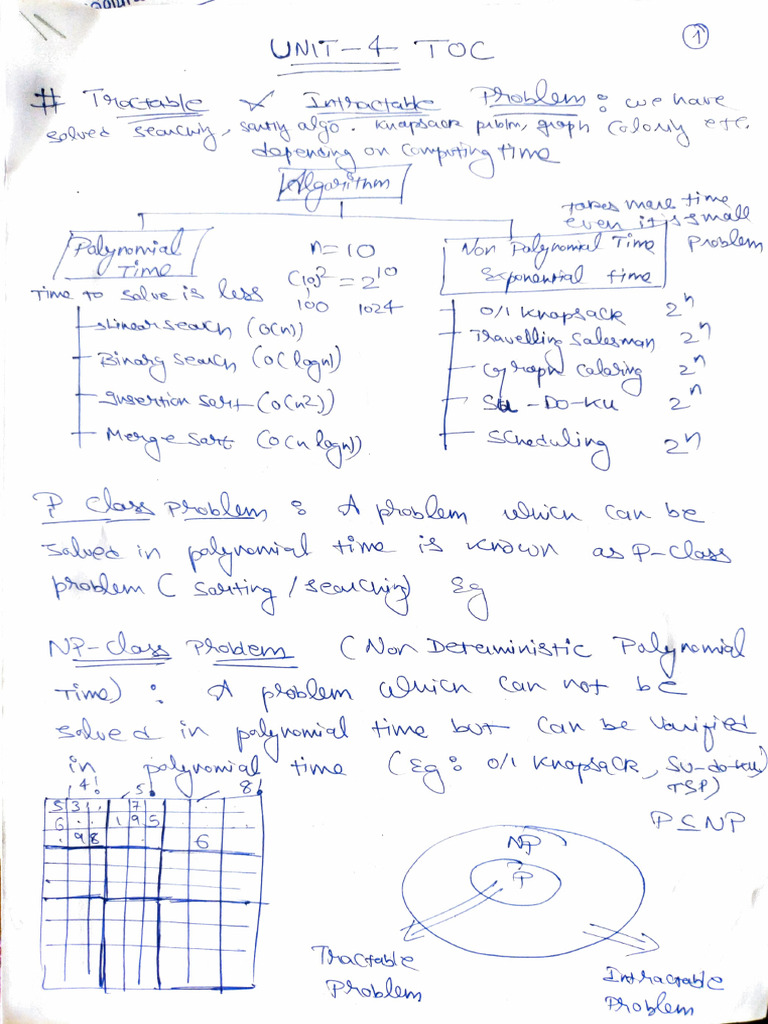 1
UNIT-4 TOC
# Tractable & Intractable Problem: we have
solved searching, sorting algo. knapsack problm, graph coloring etc.
depending on computing time
Algorithm
takes more time
even it's small
problem
Polynomial
Time
n=10
(10)² = 2¹⁰
100 1024
Non Polynomial Time
Exponential time
Time to solve is less
Linear search (O(n))
Binary search (O(logn))
Insertion sort (O(n2))
Merge sort (O(n logn))
0/1 knapsack 2ⁿ
Travelling Salesman 2ⁿ
Graph Coloring 2ⁿ
Su-Do-Ku 2ⁿ
Scheduling 2ⁿ
P class problem : A problem which can be
solved in polynomial time is known as P-class
problem ( sorting / searching) Eg
NP-class Problem (Non Deterministic Polynomial
Time) : A problem which can not be
solved in polynomial time but can be varified
in polynomial time (Eg: 0/1 knapsack, Su-do-ku,
TSP)
4! 5! 8!
5 3 . 7
6 . . 1 9 5
. 9 8 6
P ⊆ NP
NP
P
Tractable
Problem
Intractable
Problem